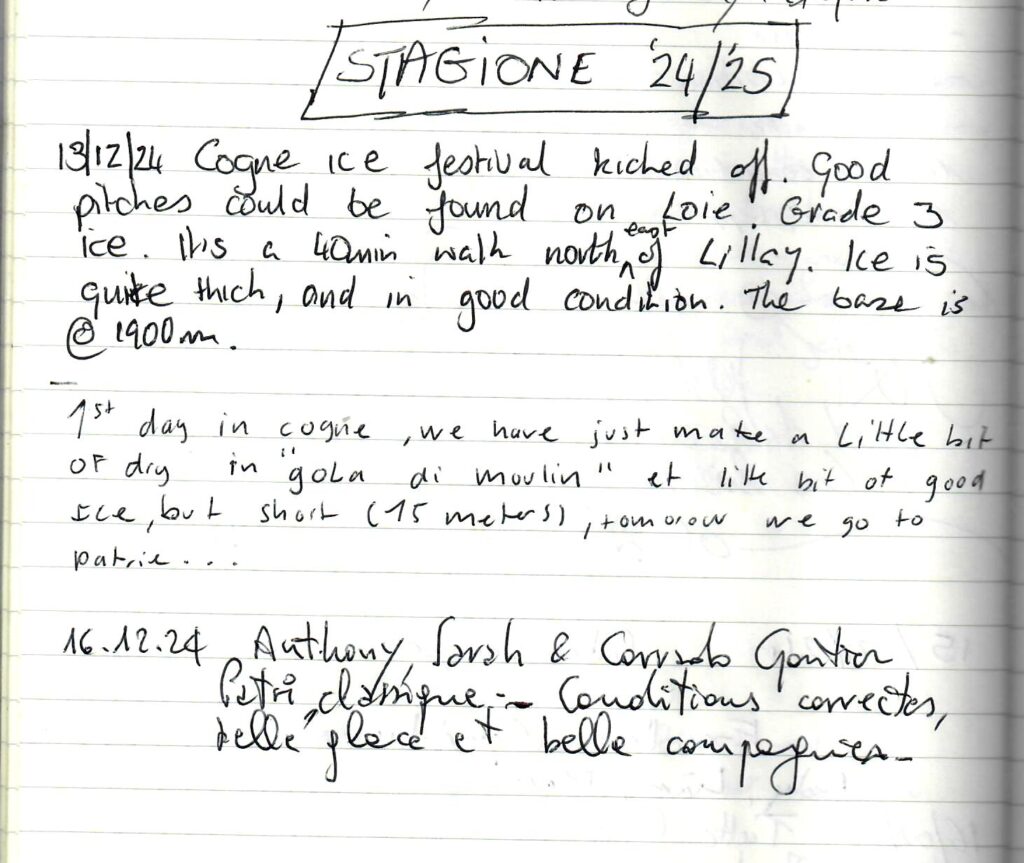 STAGIONE '24/'25
13/12/24 Cogne ice festival kicked off. Good
pitches could be found on Loie. Grade 3
ice. It's a 40min walk north east of Lillay. Ice is
quite thick, and in good condition. The base is
@ 1900m.
1st day in cogne, we have just make a little bit
of dry in "gola di moulin" et litle bit of good
ice, but short (15 meters), tomorow we go to
patrie...
16.12.24 Authony, Sarah & Corrado
Patri classique. - Conditions correctes,
belle glace et belle compagnies -